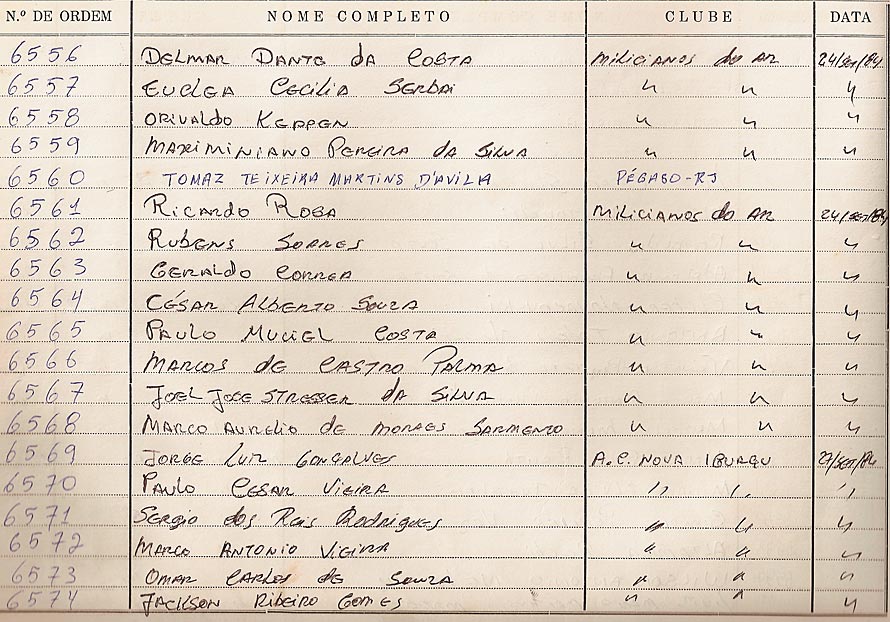 N.º DE ORDEM NOME COMPLETO CLUBE DATA
6556 DELMAR DANTE da COSTA MILICIANOS do AR 24/SET/84
6557 EUCLEA CECÍLIA SERBAI " " "
6558 ORIVALDO KEPPEN " " "
6559 MAXIMINIANO PEREIRA da SILVA " " "
6560 TOMAZ TEIXEIRA MARTINS D'AVILA PÉGASO-RJ
6561 RICARDO ROSA MILICIANOS do AR 24/SET/84
6562 RUBENS SOARES " " "
6563 GERALDO CORREA " " "
6564 CÉSAR ALBERTO SOUZA " " "
6565 PAULO MUCIEL COSTA " " "
6566 MARCOS de CASTRO PALMA " " "
6567 JOEL JOSE STRESSER da SILVA " " "
6568 MARCO AURELIO de MORAES SARMENTO " " "
6569 JORGE LUIZ GONÇALVES A.C. NOVA IGUAÇU 27/SET/84
6570 PAULO CESAR VIEIRA " " "
6571 SERGIO dos Reis Rodrigues " " "
6572 MARCO ANTONIO VIEIRA " " "
6573 OMAR CARLOS de SOUZA " " "
6574 JACKSON RIBEIRO GOMES " " "